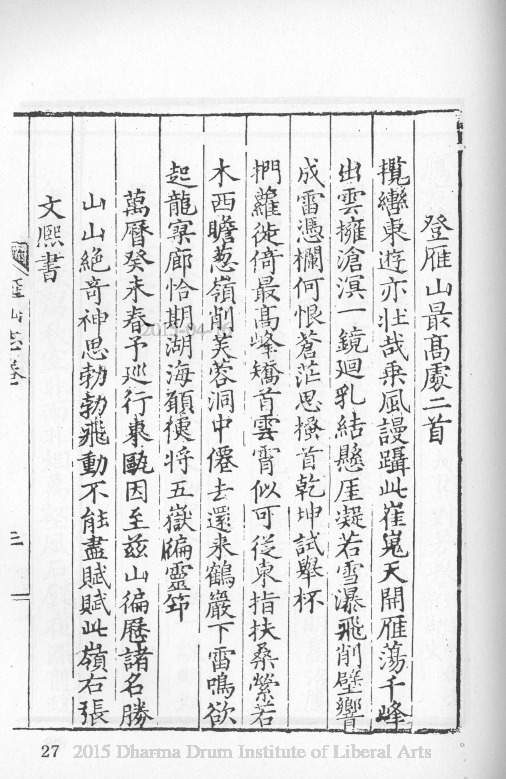 登雁山最髙處二首
攬轡東遊亦壯哉乗風謾躡此崔嵬天開雁蕩千峰
出雲擁滄溟一鏡廻乳結懸厓凝若雪瀑飛削壁響
成雷憑欄何恨蒼茫思搔首乾坤試舉杯
捫蘿徙倚最髙峰矯首雲霄似可從東指扶桑縈若
木西瞻葱嶺削芙蓉洞中僊去還来鶴巖下雷鳴欲
起龍寥廊恰期湖海願便将五嶽徧靈筇
萬曆癸未春予廵行東甌因至兹山徧歷諸名勝
山山絶竒神思勃勃飛動不能盡賦賦此嶺右張
文熈書
山志卷
三
27 2015 Dharma Drum Institute of Liberal Arts